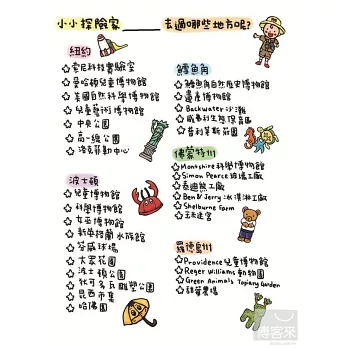 小小探險家______去過哪些地方呢?
紐約
☆索尼科技實驗室
☆曼哈頓兒童博物館
☆美國自然科學博物館
☆兒童藝術博物館
☆中央公園
☆高線公園
☆洛克菲勒中心
波士頓
☆兒童博物館
☆科學博物館
☆女巫博物館
☆新英格蘭水族館
☆芬威球場
☆大眾花園
☆波士頓公園
☆狄可多瓦雕塑公園
☆昆西市集
☆哈佛園
鱈魚角
☆鱈魚角自然歷史博物館
☆遺產博物館
☆Backwater沙灘
☆威弗利生態保育區
☆普利茅斯莊園
佛蒙特州
☆Montshire科學博物館
☆Simon Pearce玻璃工廠
☆泰迪熊工廠
☆Ben & Jerry冰淇淋工廠
☆Shelburne Farm
☆玉米迷宮
羅德島州
☆Providence兒童博物館
☆Roger Williams動物園
☆Green Animals Topiary Garden
☆甜菊農場
博客來